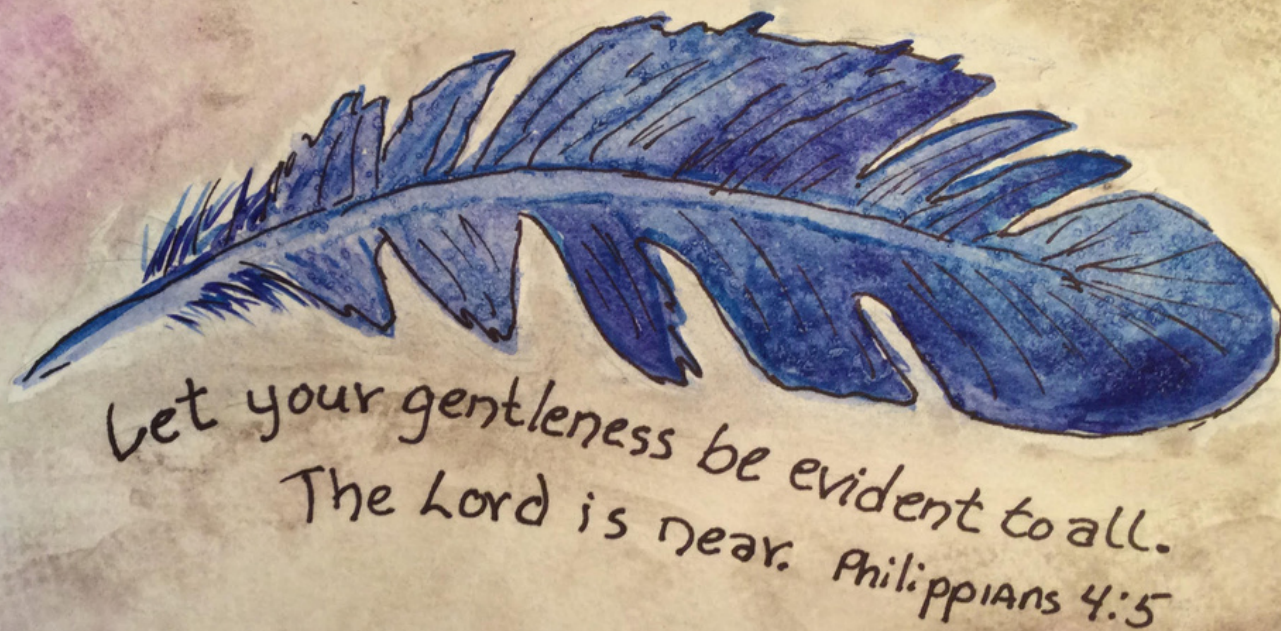 Let your gentleness be evident to all.
The Lord is near. Philippians 4:5